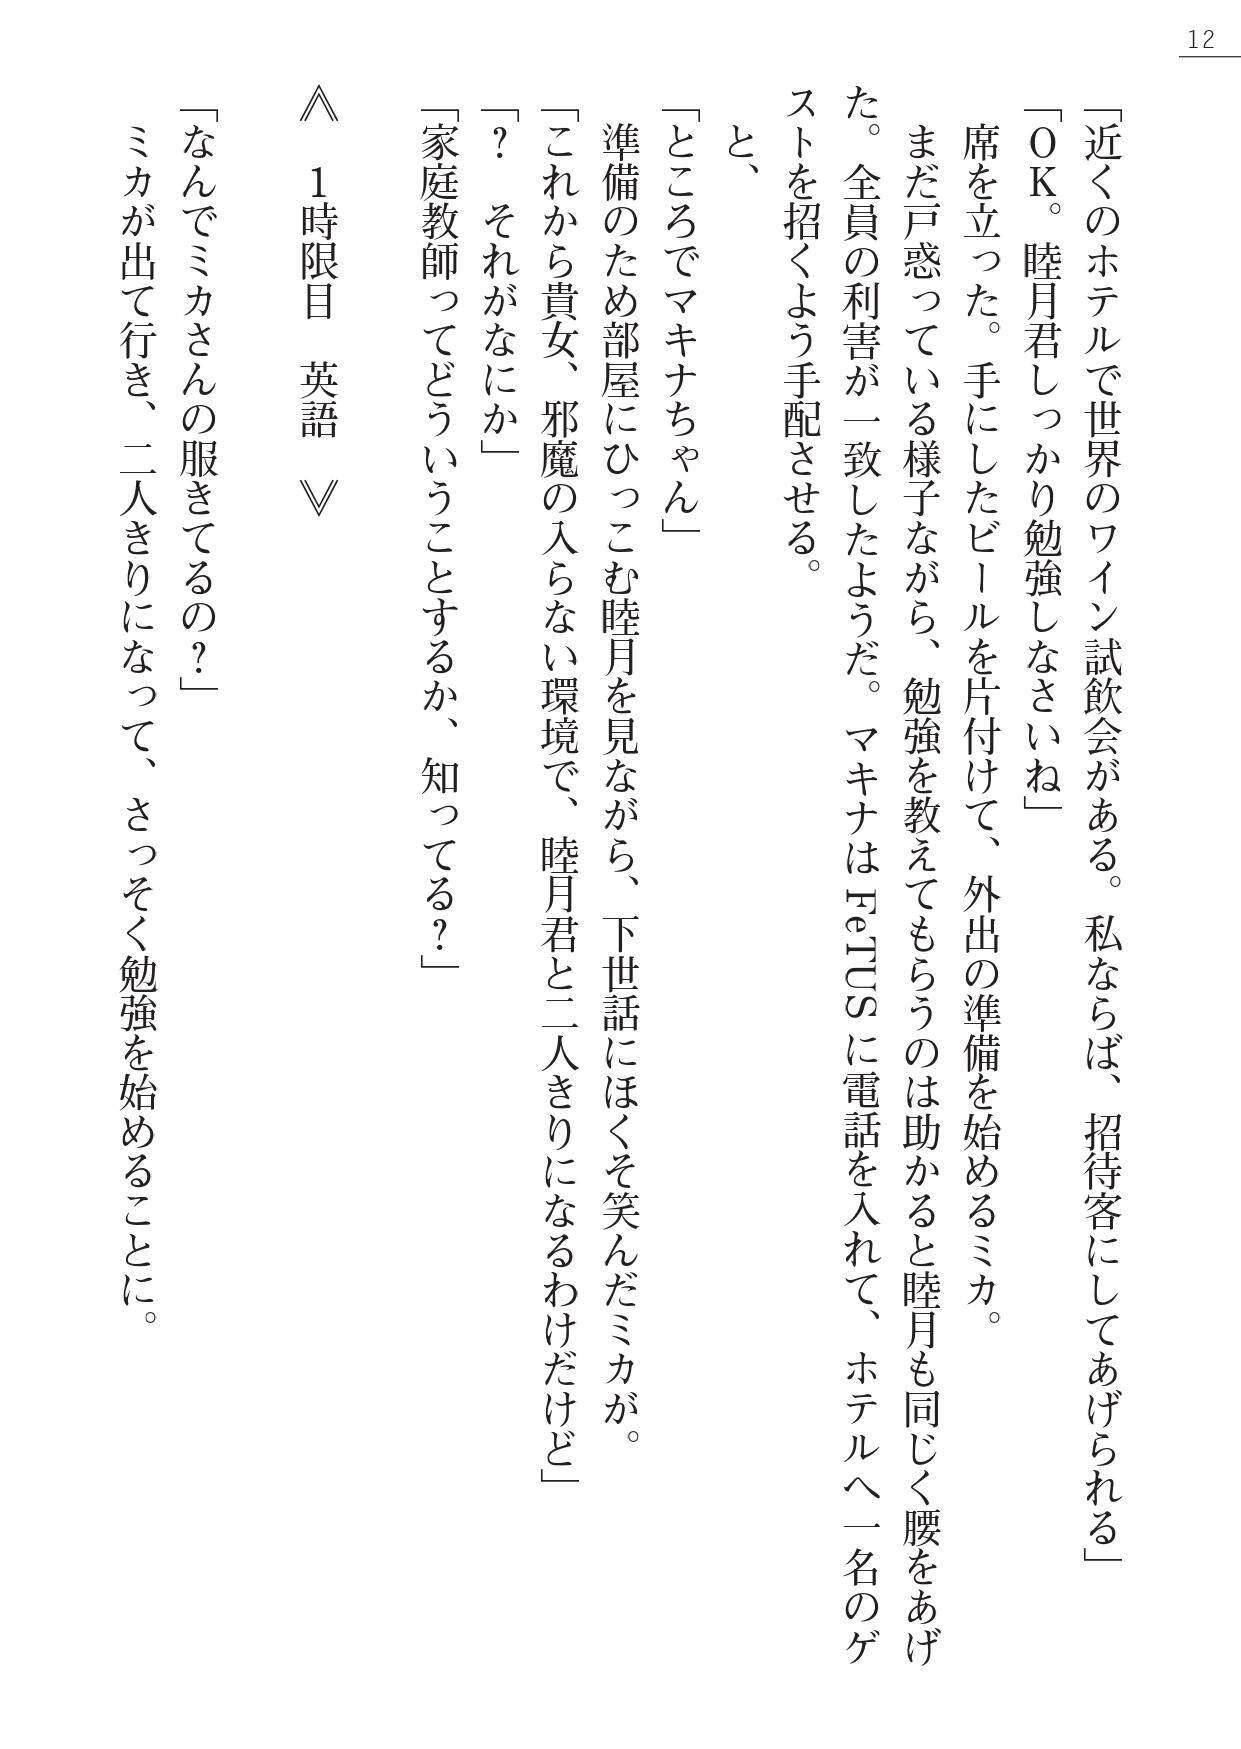 12
「近くのホテルで世界のワイン試飲会がある。私ならば、招待客にしてあげられる」
「ＯＫ。睦月君しっかり勉強しなさいね」
　席を立った。手にしたビールを片付けて、外出の準備を始めるミカ。
　まだ戸惑っている様子ながら、勉強を教えてもらうのは助かると睦月も同じく腰をあげ
た。全員の利害が一致したようだ。マキナは FeTUS に電話を入れて、ホテルへ一名のゲ
ストを招くよう手配させる。
　と、
「ところでマキナちゃん」
　準備のため部屋にひっこむ睦月を見ながら、下世話にほくそ笑んだミカが。
「これから貴女、邪魔の入らない環境で、睦月君と二人きりになるわけだけど」
「？　それがなにか」
「家庭教師ってどういうことするか、知ってる？」
《　１時限目　英語　》
「なんでミカさんの服きてるの？」
　ミカが出て行き、二人きりになって、さっそく勉強を始めることに。